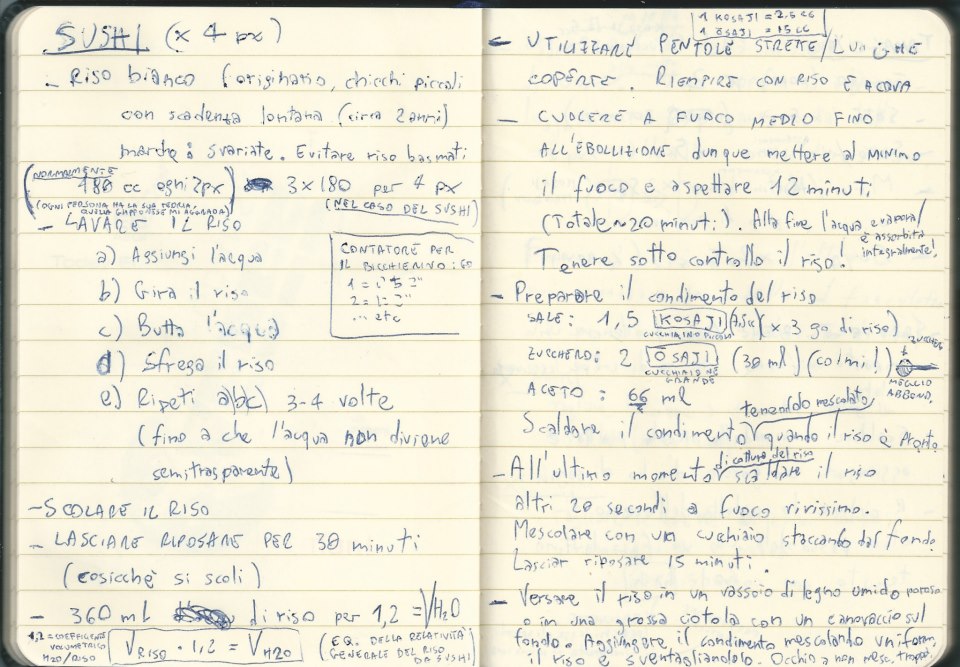 SUSHI (x 4 px)
- Riso bianco (originario, chicchi piccoli
con scadenza lontana (circa 2 anni)
marche: svariate. Evitare riso basmati
(NORMALMENTE
180 cc ogni 2px) 3x180 per 4 px
(OGNI PERSONA HA LA SUA TEORIA,
QUELLA GIAPPONESE MI AGGRADA)
(NEL CASO DEL SUSHI)
- LAVARE IL RISO
a) Aggiungi l'acqua
b) Gira il riso
c) Butta l'acqua
d) Sfrega il riso
e) Ripeti a/b/c) 3-4 volte
(fino a che l'acqua non diviene
semitrasparente)
CONTATORE PER
IL BICCHIERINO: GO
... etc
- SCOLARE IL RISO
- LASCIARE RIPOSARE PER 30 minuti
(cosicchè si scoli)
- 360 mL di riso per 1,2 = VH2O
1,2 = COEFFICIENTE
VOLUMETRICO
H2O/RISO
VRISO · 1,2 = VH2O
(EQ. DELLA RELATIVITÀ
GENERALE DEL RISO
DA SUSHI)
1 KOSAJI = 2,5 cc
1 ŌSAJI = 15 cc
- UTILIZZARE PENTOLE STRETTE/LUNGHE
COPERTE. RIEMPIRE CON RISO E ACQUA
- CUOCERE A FUOCO MEDIO FINO
ALL'EBOLLIZIONE dunque mettere al MINIMO
il fuoco e aspettare 12 minuti
(Totale ~ 20 minuti). Alla fine l'acqua evapora/
è assorbita
integralmente!
Tenere sotto controllo il riso!
- Preparare il condimento del riso
SALE: 1,5 KOSAJI (7,5cc) (x 3 go di riso)
CUCCHIAINO PICCOLO
ZUCCHERO: 2 ŌSAJI (30 ml) (colmi!)
CUCCHIAIONE
GRANDE
ZUCCHERO
MEGLIO
ABBOND.
ACETO: 66 ml
tenendolo mescolato
Scaldare il condimento quando il riso è pronto
di cottura del riso
- All'ultimo momento scaldare il riso
altri 20 secondi a fuoco vivissimo.
Mescolare con un cucchiaio staccando dal fondo.
Lasciar riposare 15 minuti.
- Versare il riso in un vassoio di legno umido poroso
o in una grossa ciotola con un canovaccio sul
fondo. Aggiungere il condimento mescolando uniform.
il riso e sventagliandolo. Occhio a non mesc. troppo.